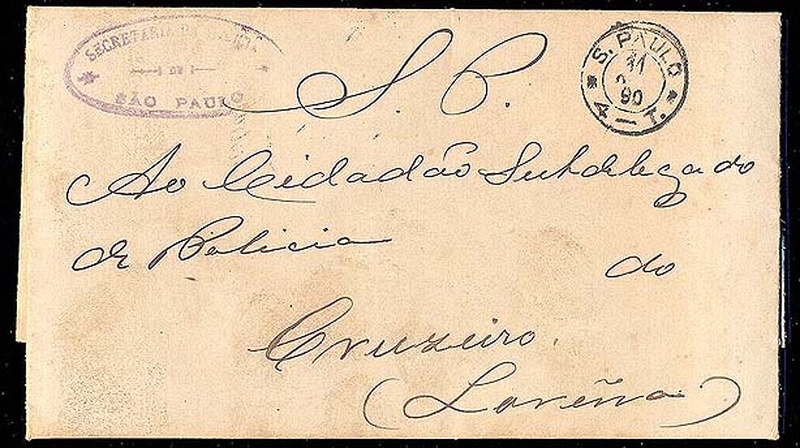 SECRETARIA
DE
SÃO PAULO
S. PAULO
11
90
4 — T.
S. P.
Ao Cidadão Subdelegado
de Policia do
Cruzeiro.
(Lorena)